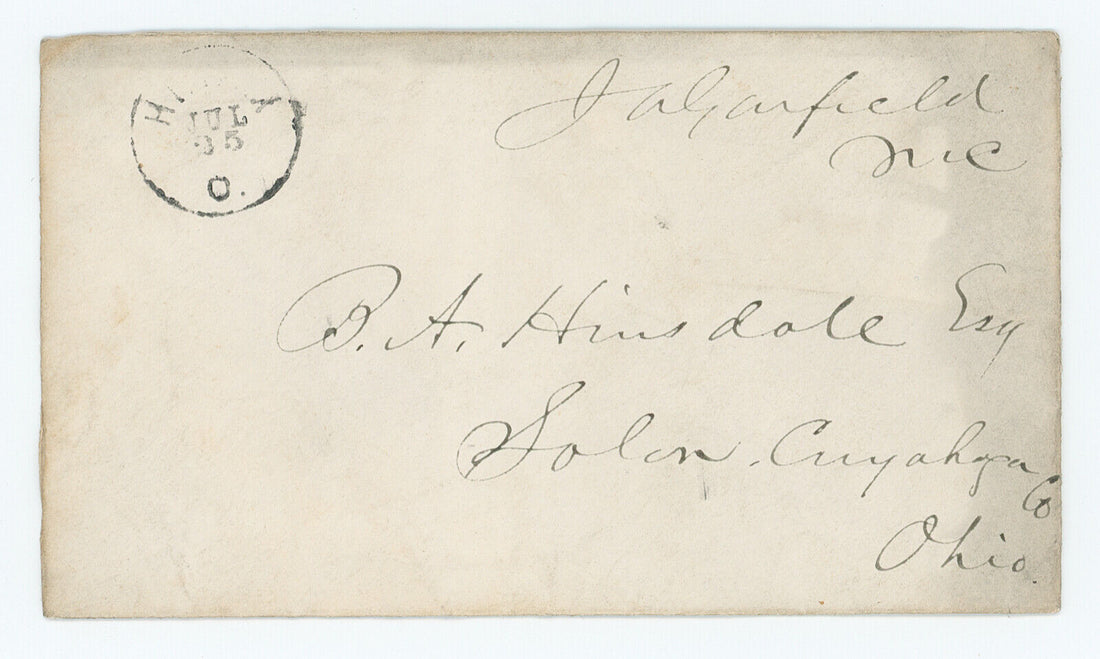 JUL
O.
J A Garfield
MC
B. A. Hinsdale Esq
Solon, Cuyahoga
Co
Ohio.